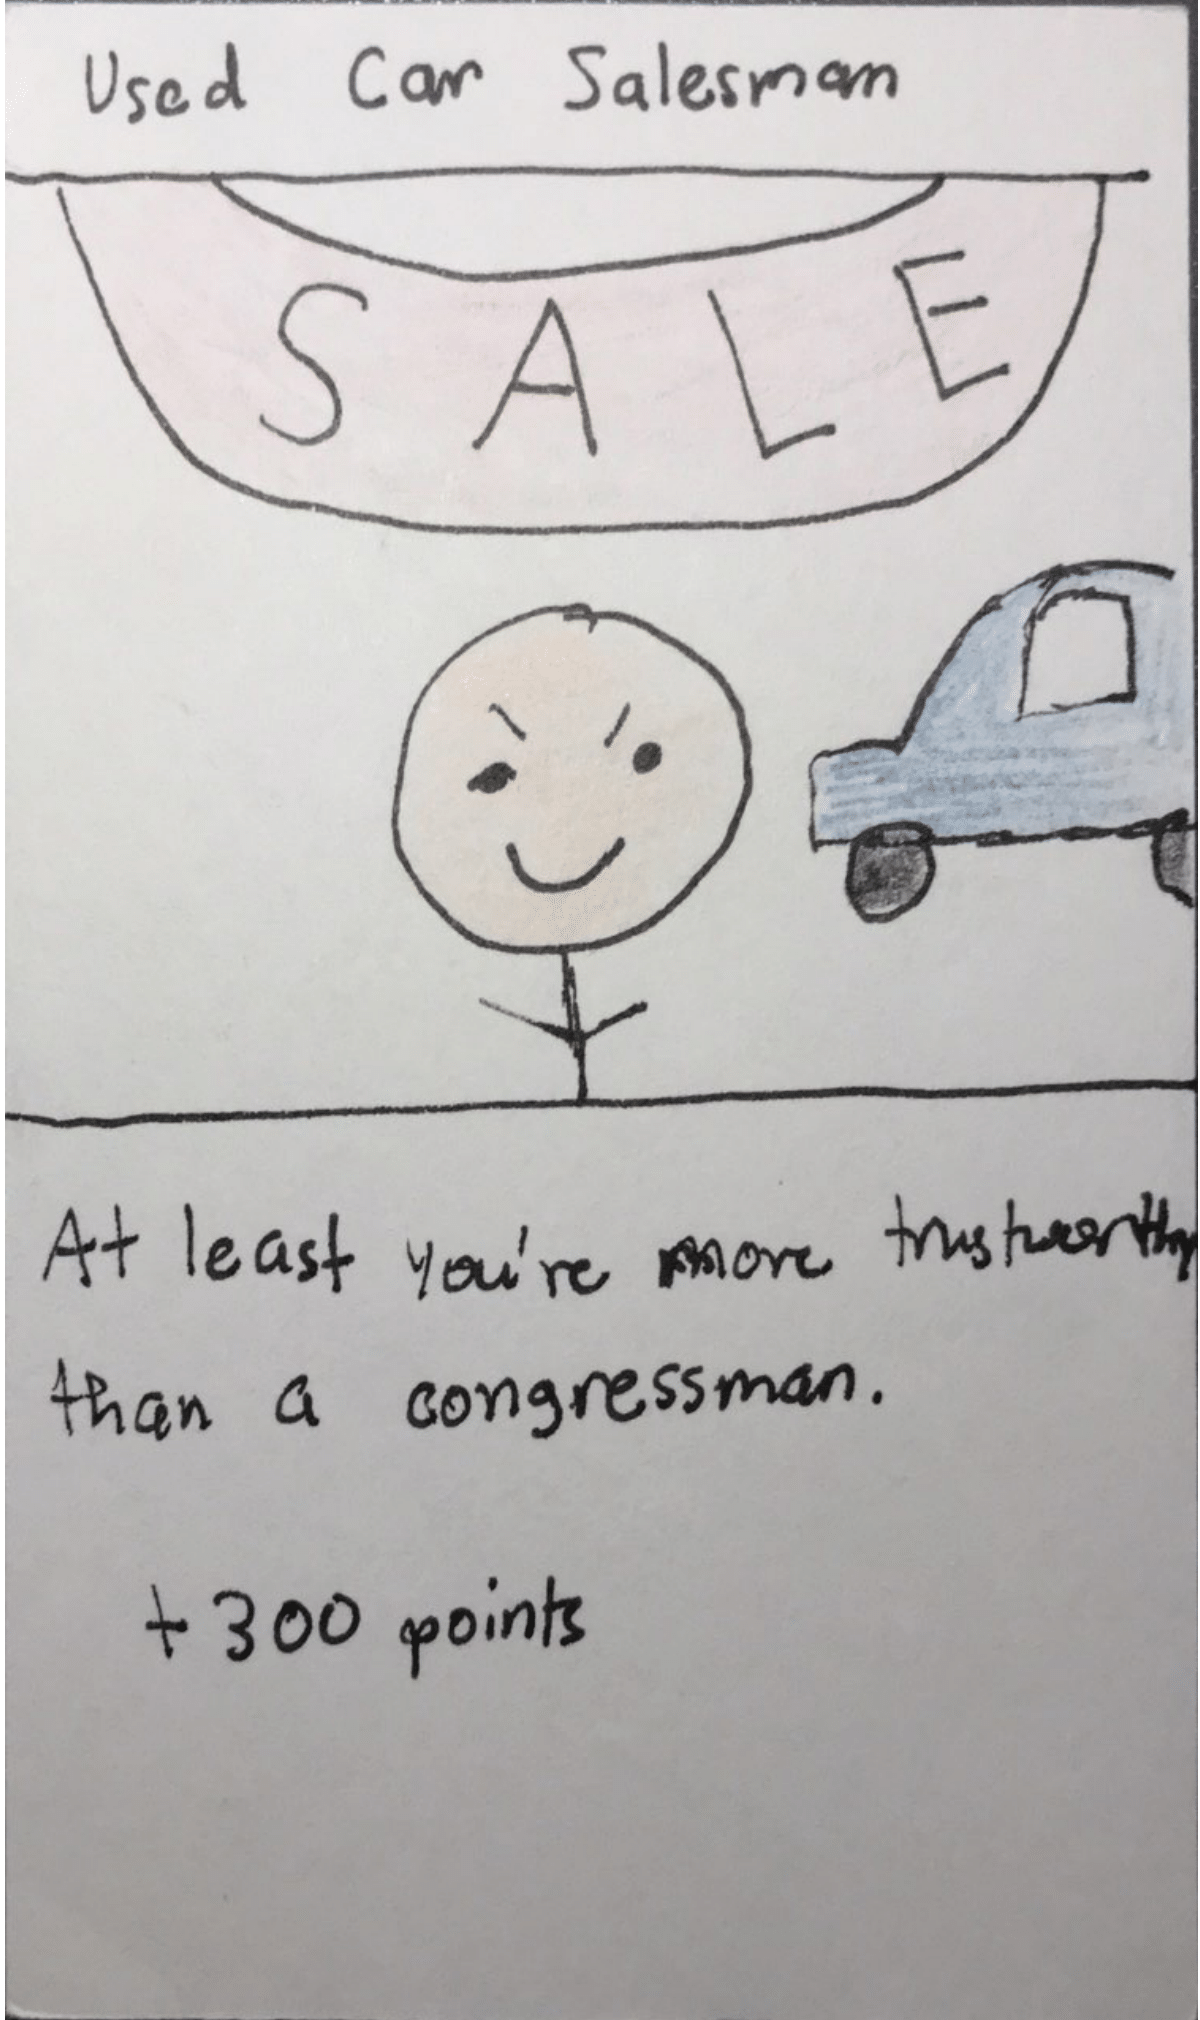 Used Car Salesman
SALE
At least you're more trustworthy
than a congressman.
+300 points